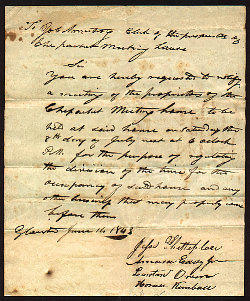 To Job Armstrong Clerk of the proprietors of
Chepachet Meeting house
Sir
You are hereby requested to notify
a meeting of the proprietors of the
Chepachet Meeting house to be
held at said house on Saturday the
8th day of July next at 6 oclock
P.M. for the purpose of regulating
the division of the time for the
occupancy of said house and any
other business that may properly come
before them
Glocester June 14 1843
Jesse
Amasa Eddy Jr
Burton Owen
Horace Kimball